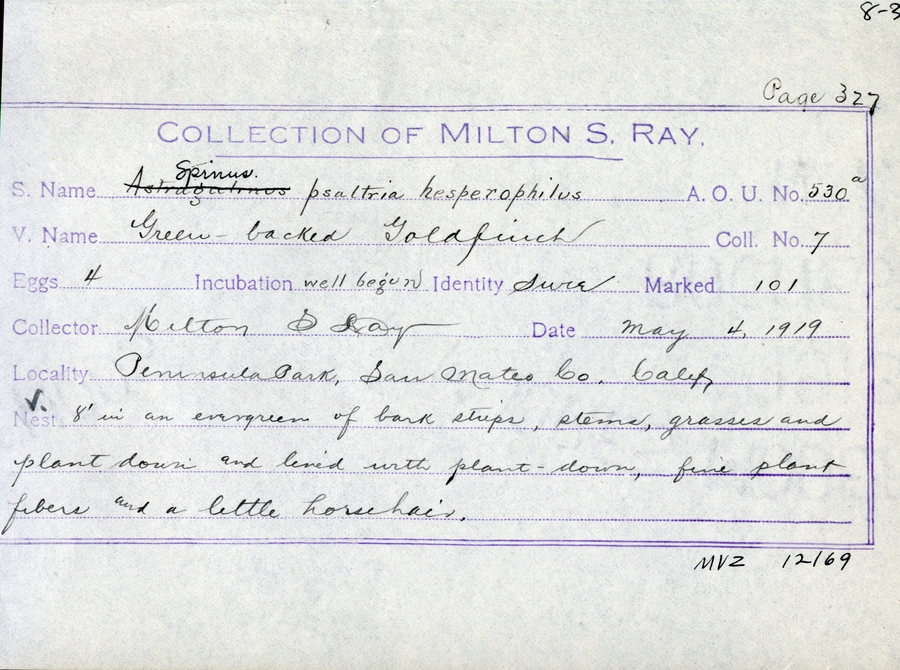 8-3
Page 327
COLLECTION OF MILTON S. RAY.
Spinus.
S. Name Astragalinus psaltria hesperophilus A. O. U. No. 530a
V. Name Green-backed Goldfinch Coll. No. 7
Eggs 4 Incubation well begun Identity Sure Marked 101
Collector Milton S Ray Date May 4, 1919
Locality Peninsula Park, San Mateo Co. Calif,
Nest 8' in an evergreen of bark strips, stems, grasses and
plant down and lined with plant-down, fine plant
fibers and a little horsehair.
MVZ 12/69